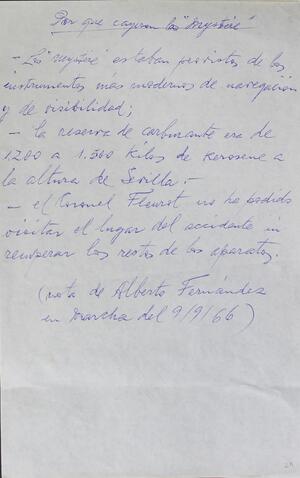 Por que cayeron los "Mystère"
- Los "Mystère" estaban provistos de los
instrumentos más modernos de navegación
y de visibilidad;
- la reserva de carburante era de
1200 a 1.500 kilos de kerosene a
la altura de Sevilla.-
- el Coronel Fleurot no ha podido
visitar el lugar del accidente ni
recuperar los restos de los aparatos.
(nota de Alberto Fernández
en Marcha del 9/9/66)